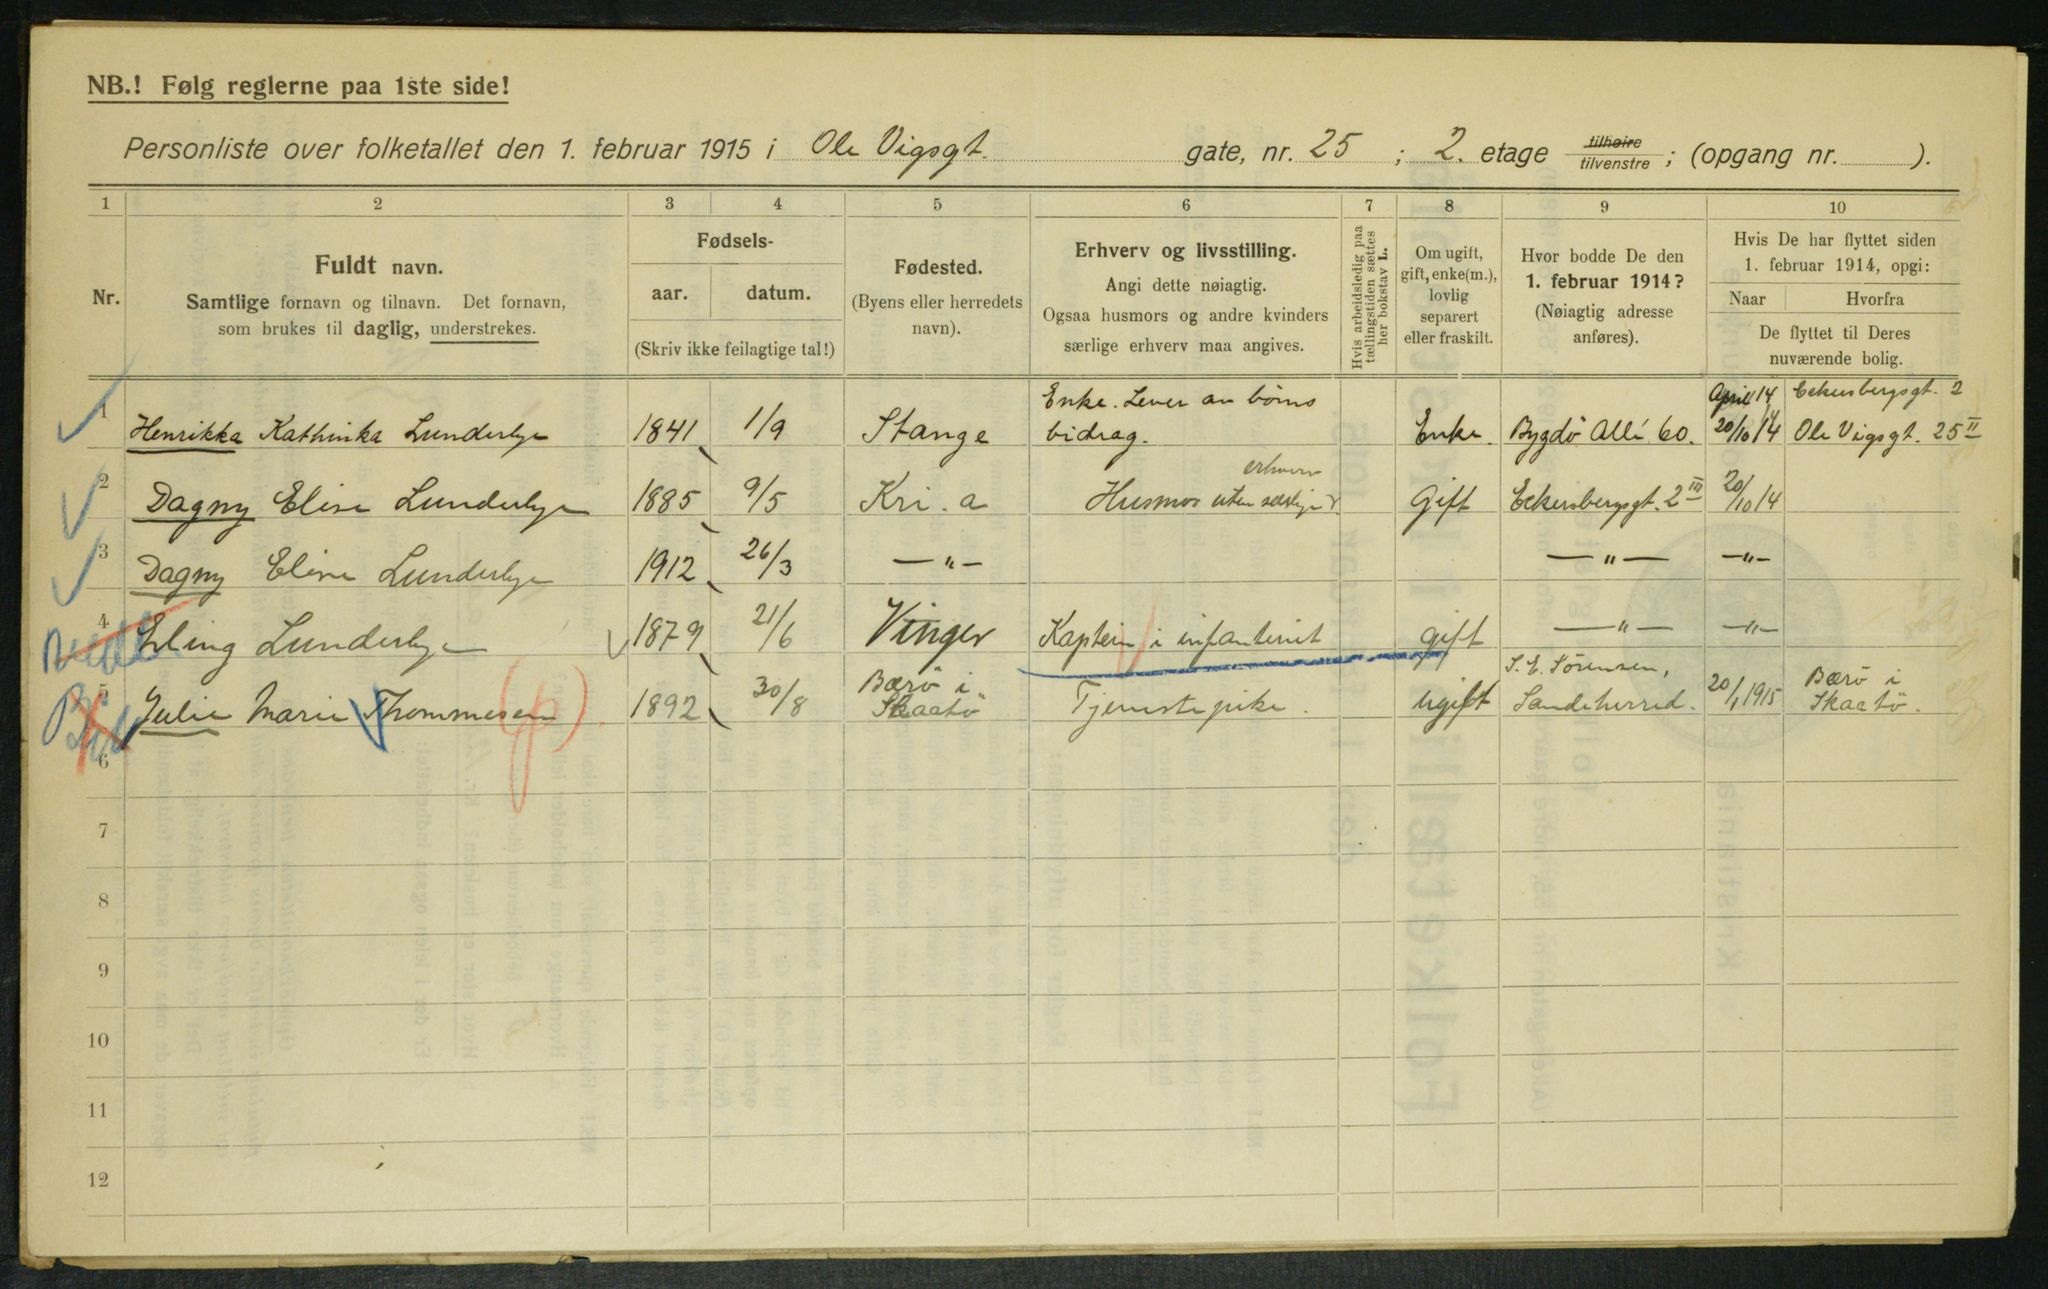 NB.! Følg reglerne paa 1ste side!
Personliste over folketallet den 1. februar 1915 i Ole Vigsgt. gate, nr. 25 ; 2. etage tilhøire tilvenstre ; (opgang nr. ).
1 2 3 4 5 6 7 8 9 10
Nr.
Fuldt navn.
Samtlige fornavn og tilnavn. Det fornavn,
som brukes til daglig, understrekes.
Fødsels-
aar. datum.
(Skriv ikke feilagtige tal!)
Fødested.
(Byens eller herredets
navn).
Erhverv og livsstilling.
Angi dette nøiagtig.
Ogsaa husmors og andre kvinders
særlige erhverv maa angives.
Hvis arbeidsledig paa
tællingstiden sættes
her bokstav L.
Om ugift,
gift, enke(m.),
lovlig
separert
eller fraskilt.
Hvor bodde De den
1. februar 1914?
(Nøiagtig adresse
anføres).
Hvis De har flyttet siden
1. februar 1914, opgi:
Naar Hvorfra
De flyttet til Deres
nuværende bolig.
Enke. Lever av børns April 14 Eckersbergsgt. 2
1 Henrikka Kathinka Lunderbye 1841 1/9 Stange bidrag. Enke. Bygdö Allé 60. 20/10 14 Ole Vigsgt. 25 II
erhverv
2 Dagny Elise Lunderbye 1885 9/5 Kri.a Husmor uten særlige Gift Eckersbergsgt. 2 III 20/10 14
3 Dagny Elise Lunderbye 1912 26/3 — " — — " — — " —
4 Erling Lunderbye 1879 21/6 Vinger Kaptein i infanteriet gift — " — — " —
Bærö i S. E. Sörensen, Bærö i
5 Julie Marie Thommesen (p). 1892 30/8 Skaatö Tjenestepike. ugift Sandeherred. 20/1 1915 Skaatö.
6
7
8
9
10
11
12